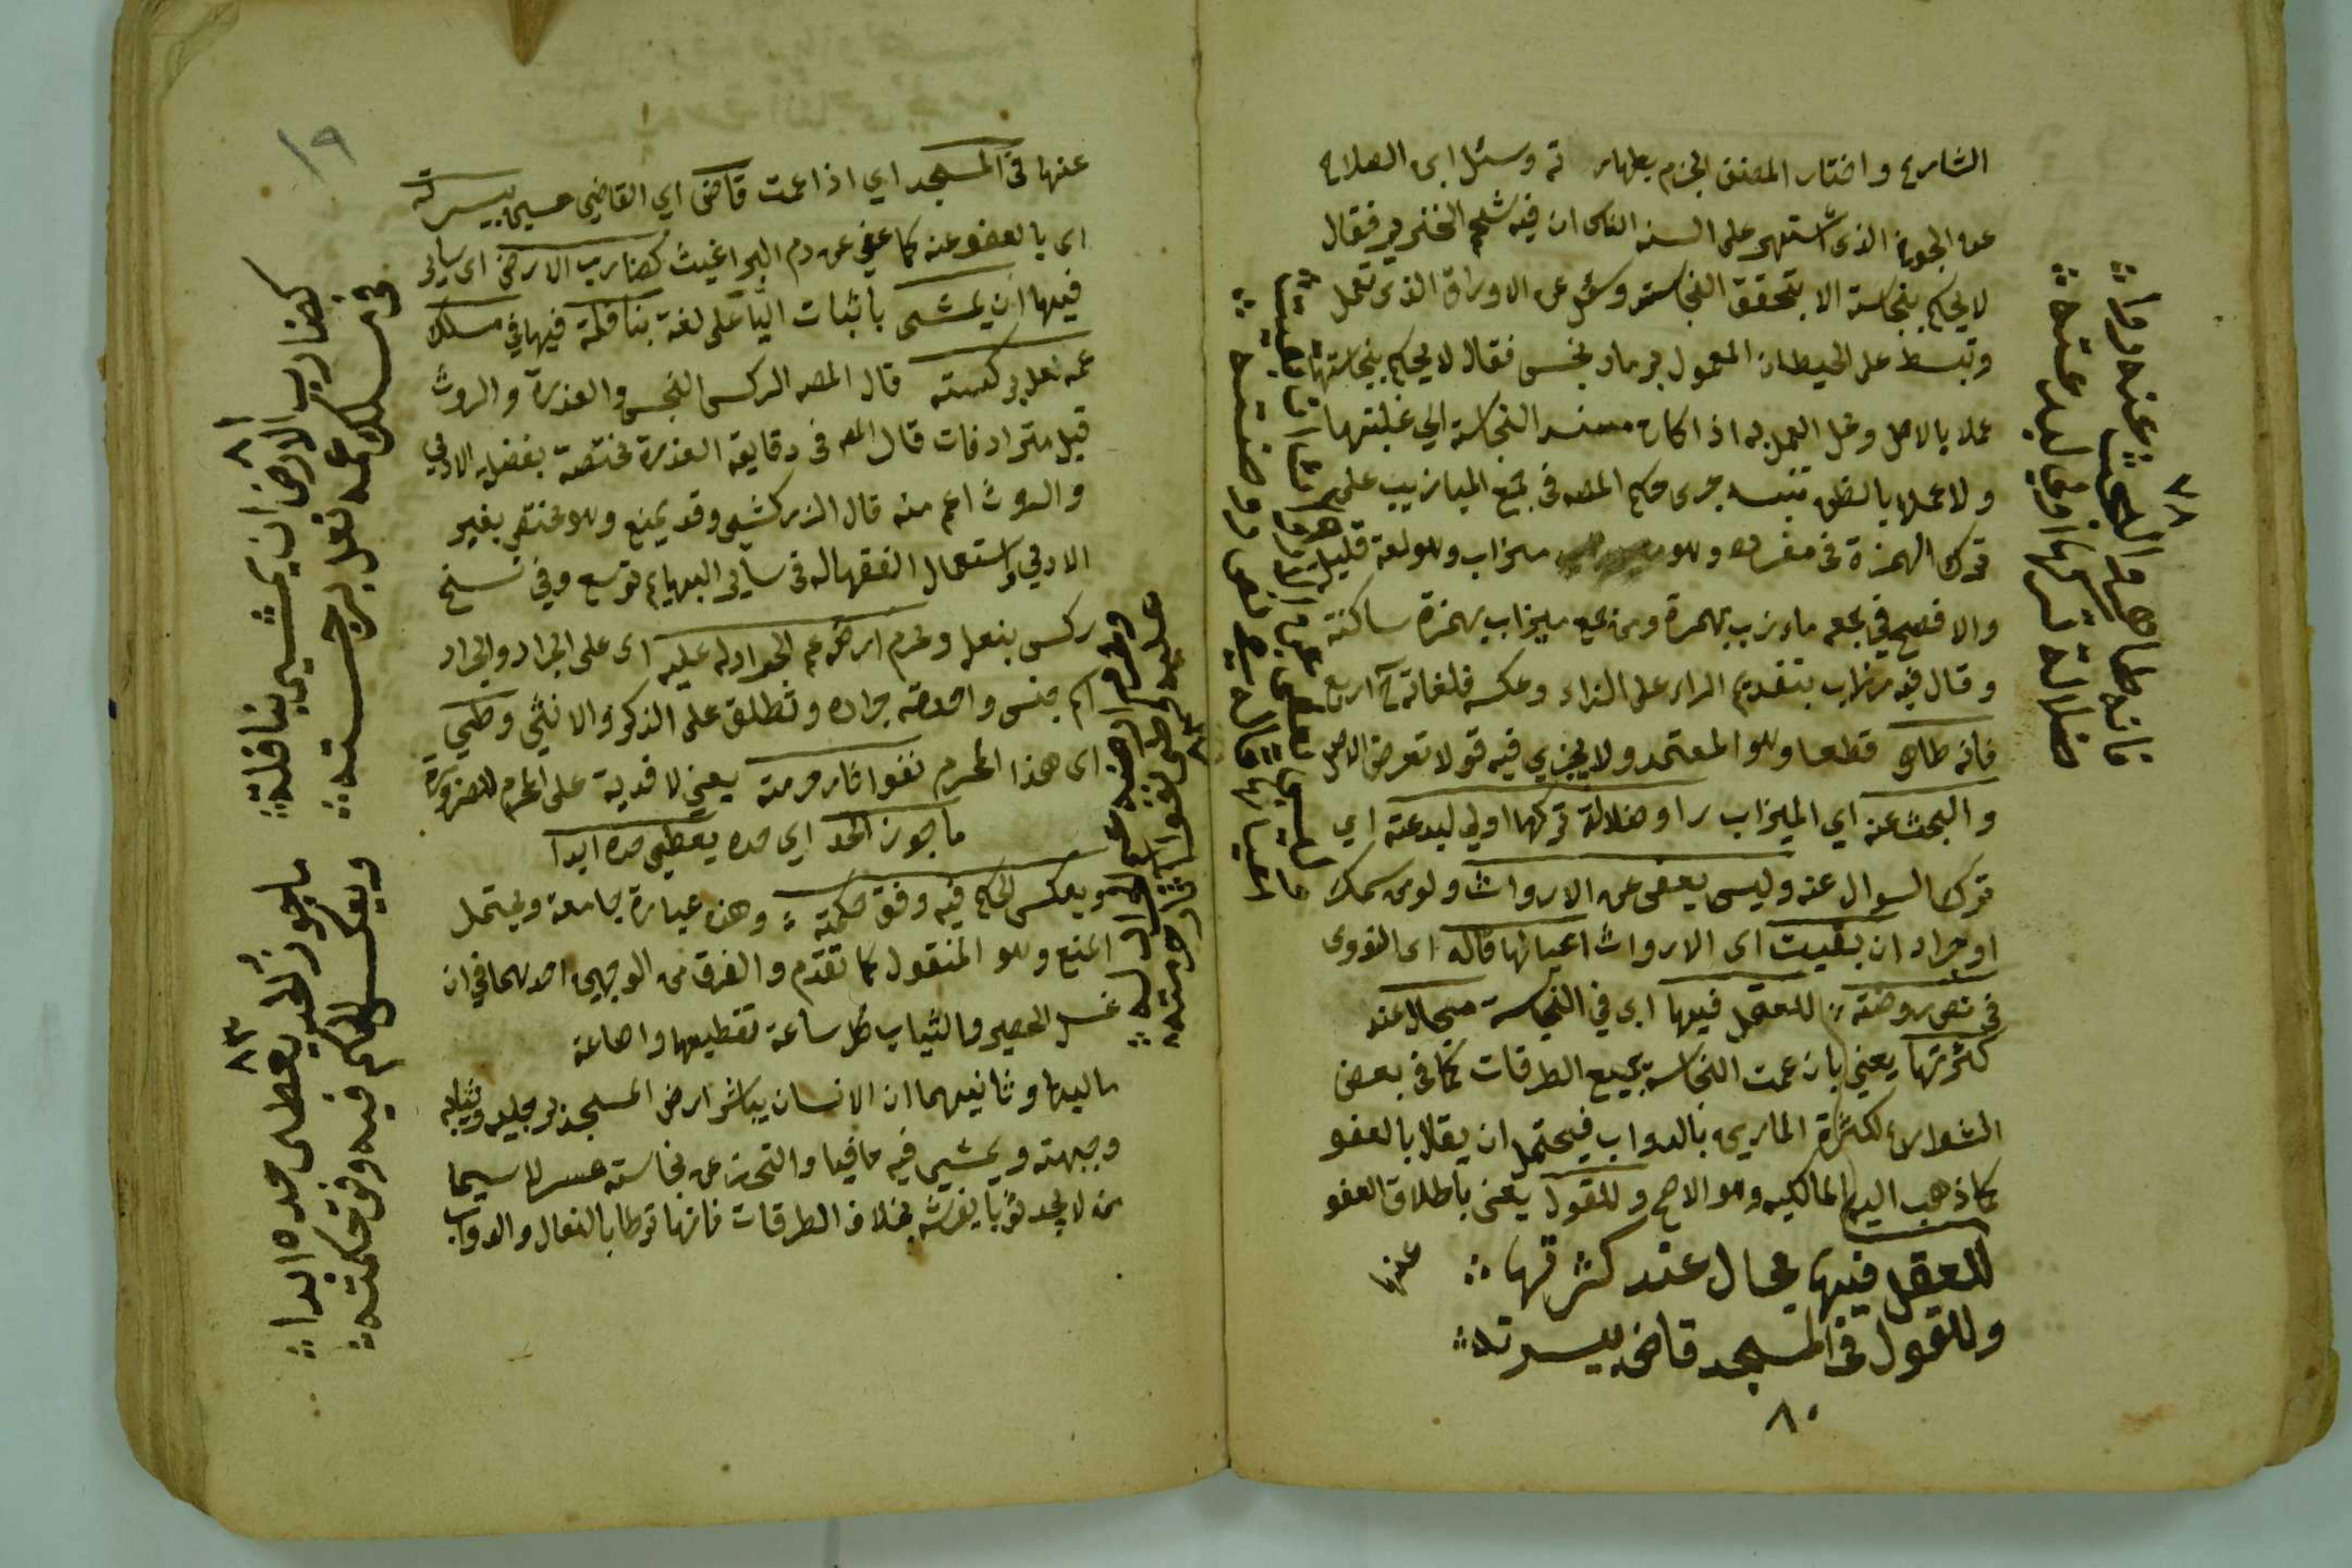 الشارع واختار المصنف الجزم بطهار ته وسئل ابن الصلاح
عن الجوخ الذى اشتهر على السنة الناس ان فيه شحم الخنزير فقال
لا يحكم بنجاسة الا بتحقق النجاسة وسئل عن الاوراق الذى تعمل
وتبسط على الحيطان المعمول برماد نجس فقال لا يحكم بنجاستها
عملا بالاصل ومحل العمل به اذا كان مستند النجاسة الى غلبتها
ولا عملا بالظن تنبيه جرى حكم المصه فى جمع الميازيب على
ترك الهمزة فى مفرده وهو ميزاب وهو لغة قليلة
والافصح في جمعه مازيب بهمزة ومن جمع ميزاب بهمزة ساكنة
وقال فيه مزراب بتقديم الراء على الزاء وعكسه فلغاته اربع
فانه طاهر قطعا وهو المعتمد ولا يجري فيه قولا تعرض الاصل
والبحث عنه اي الميزاب را وضلالة تركها اولى لبدعته اي
ترك السوال عنه وليس يعفى عن الارواث ولو من سمك
او جراد ان بقيت اى الارواث اعيانها قاله اى النووى
فى نص روضته للعقل فيها اى في النجاسة مجال عند
كثرتها يعني بان عمت النجاسة جميع الطرقات كما فى بعض
الشوارع لكثرة المارين بالدواب فيحتمل ان يقال بالعفو
كما ذهب اليه المالكيه وهو الاصح وللقول يعنى باطلاق العفو
للعقل فيها مجال عند كثرتها
عنها
وللقول فى المسجد قاض بيسرته
٨٠
٧٨
فانه طاهر والبحث عنه روا
ضلالة تركها اولى لبدعته
وليس يعفى عن الارواث ان بقيت
اعيانها قاله فى نص روضته
١٩
عنها فى المسجد اي اذا عمت قاض اي القاضي حسين بيسرته
اى بالعفو عنه كما عفي عن دم البراغيث كضارب الارض اى ساير
فيها ان يمشى باثبات اليا على لغة بنافلة فيها في مسلك
عمه نعل بركسته قال المصه الركس النجس والعذرة والروث
قيل مترادفات قال المصه فى دقايقه العذرة مختصة بفضلة الادمي
والروث اعم منه قال الزركشى وقد يمنع وهو مختص بغير
الادمي واستعمال الفقها له فى ساير البهايم توسع وفي نسخ
ركس بنعل ومحرم ارضه عم الجراد له عليه اى على الجراد والجراد
اسم جنس واحدته جراده وتطلق على الذكر والانثى وطي
اى هذا المحرم نفوا ثار حرمته يعني لا فدية على المحرم للضرورة
ما جوز الحد اي حده يعطي حده ابدا
ويعكس الحكم فيه وفق حكمته وهذه عبارة جامعة ويحتمل
المنع وهو المنقول كما تقدم والفرق من الوجهين احدهما في ان
غسل الحصير والثياب كل ساعة تقطيعها واضاعة
ماليها وثانيهما ان الانسان يباشر ارض المسجد برجليه وثيابه
وجبهته ويمشي فيه حافيا والتحرز عن نجاسته عسر لا سيما
من لا يجد ثوبا يفرشه بخلاف الطرقات فانها توطا بالنعال والدواب
٨١
كضارب الارض ان يمشي بنافلة
فى مسلك عمه نعل برجسته
٨٢
ومحرم ارضه عم الجراد له
عليه وطي نفوا ثار حرمته
٨٣
ما جوز الحد يعطى حده ابدا
ويعكس الحكم فيه وفق حكمته